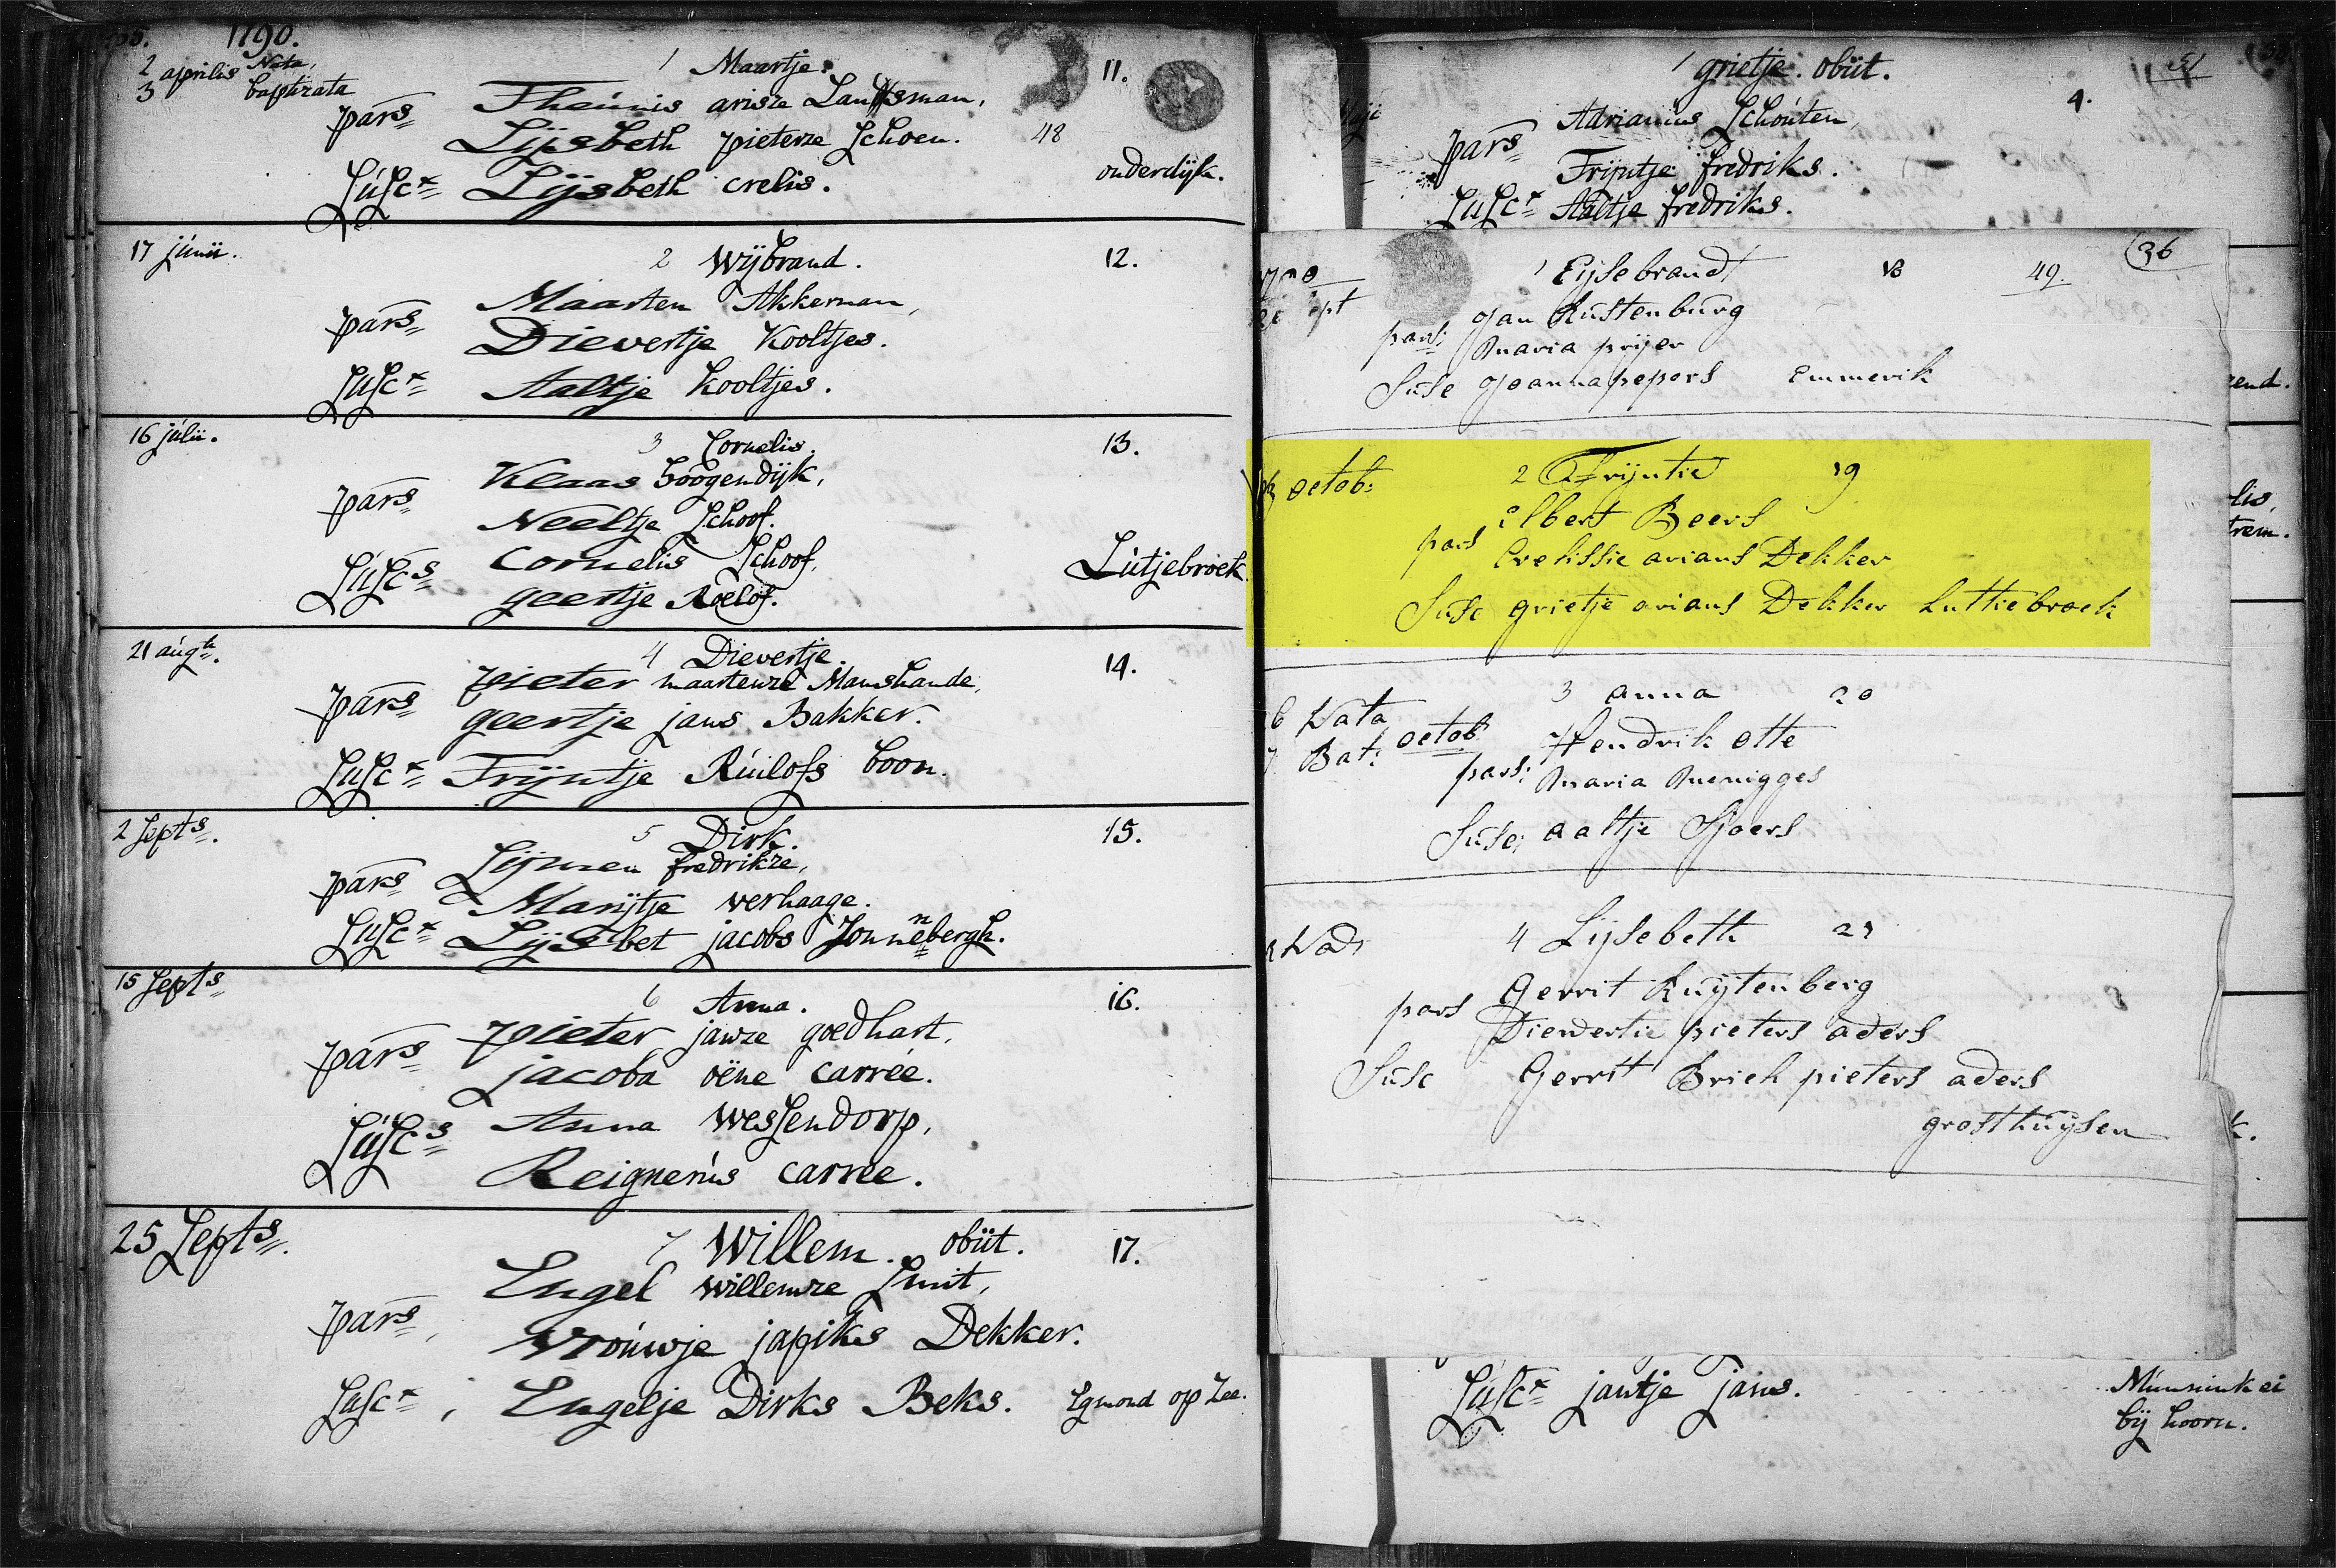 1790.
2 aprilis Nata,
3 baptizata
1 Maartje.
11.
pars Theunis arisze Landsman,
Lijsbeth pieterze Schoen.
48
Susc Lijsbeth crelis.
onderdijk.
17 junii.
2 Wijbrand.
12.
pars Maarten Akkerman,
Dievertje Kooltjes.
Susc Aaltje Kooltjes.
16 julii.
3 Cornelis.
13.
pars Klaas hoogendijk,
Neeltje Schoof.
Suscs Cornelis Schoof,
geertje Roelof.
Lutjebroek.
21 augti.
4 Dievertje.
14.
pars pieter maartenze Manshande,
geertje jans Bakker.
Susc Trijntje Ruilofs boon.
2 Septs.
5 Dirk.
15.
pars Sijmen fredrikze,
Marijtje verhaage.
Susc Lijsbet jacobs Zonnebergh.
15 Septs
6 Anna.
16.
pars pieter janze goedhart,
jacoba oëne carrée.
Suscs Anna Wessendorp,
Reignerus carrée.
25 Septs.
7 Willem. obiit.
17.
pars Engel willemze Smit,
Vrouwje japiks Dekker.
Susc Engelje Dirks Beks.
Egmond op Zee.
1 grietje. obiit.
4.
pars Adrianus Schouten,
Trijntje fredriks.
Susc Aaltje fredriks.
36
1 Eijsebrand
18
49.
pars Jan Rustenburg
Maria prijer
Susc Joanna pepers Emmerik
octob:
2 Trijntie
19
pars Elbert Beers
Crelissie arians Dekker
Susc grietje arians Dekker Luttiebroek
6 Nata
7 Bat: octob
3 anna
20
pars: Hendrik otte
Maria Muenigges
Susc: aaltje Sjoers
4 Lijsebeth
21
pars Gerrit Ruijtenberg
Diewertie pieters aders
Susc Gerrit Briek pieters aders
grosthuijsen
Susc jantje jans.
Munnink ei
bij hoorn.